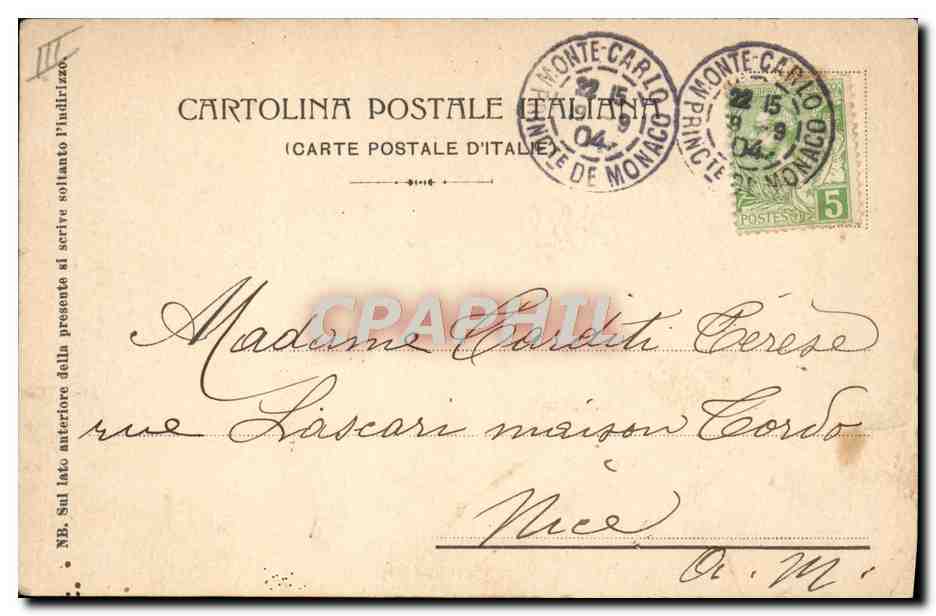 III
CARTOLINA POSTALE ITALIANA
(CARTE POSTALE D'ITALIE)
MONTE-CARLO
22 15
9 9
04
PRINCTE DE MONACO
MONTE-CARLO
22 15
9 9
04
PRINCTE DE MONACO
POSTES 5
NB. Sul lato anteriore della presente si scrive soltanto l'indirizzo.
CPAPHIL
Madame Corditi Térèse
rue Lascari maison Tordo
Nice
A. M.